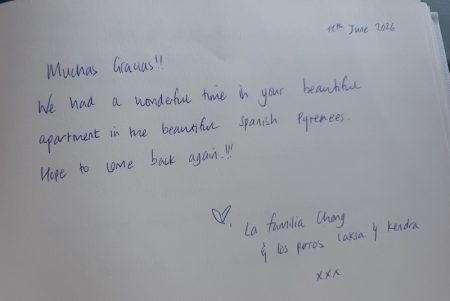 11th June 2026
Muchas Gracias!!
We had a wonderful time in your beautiful
apartment in the beautiful Spanish Pyrenees.
Hope to come back again.!!!
La familia Chang
& los perros Laksa & Kendra
xxx